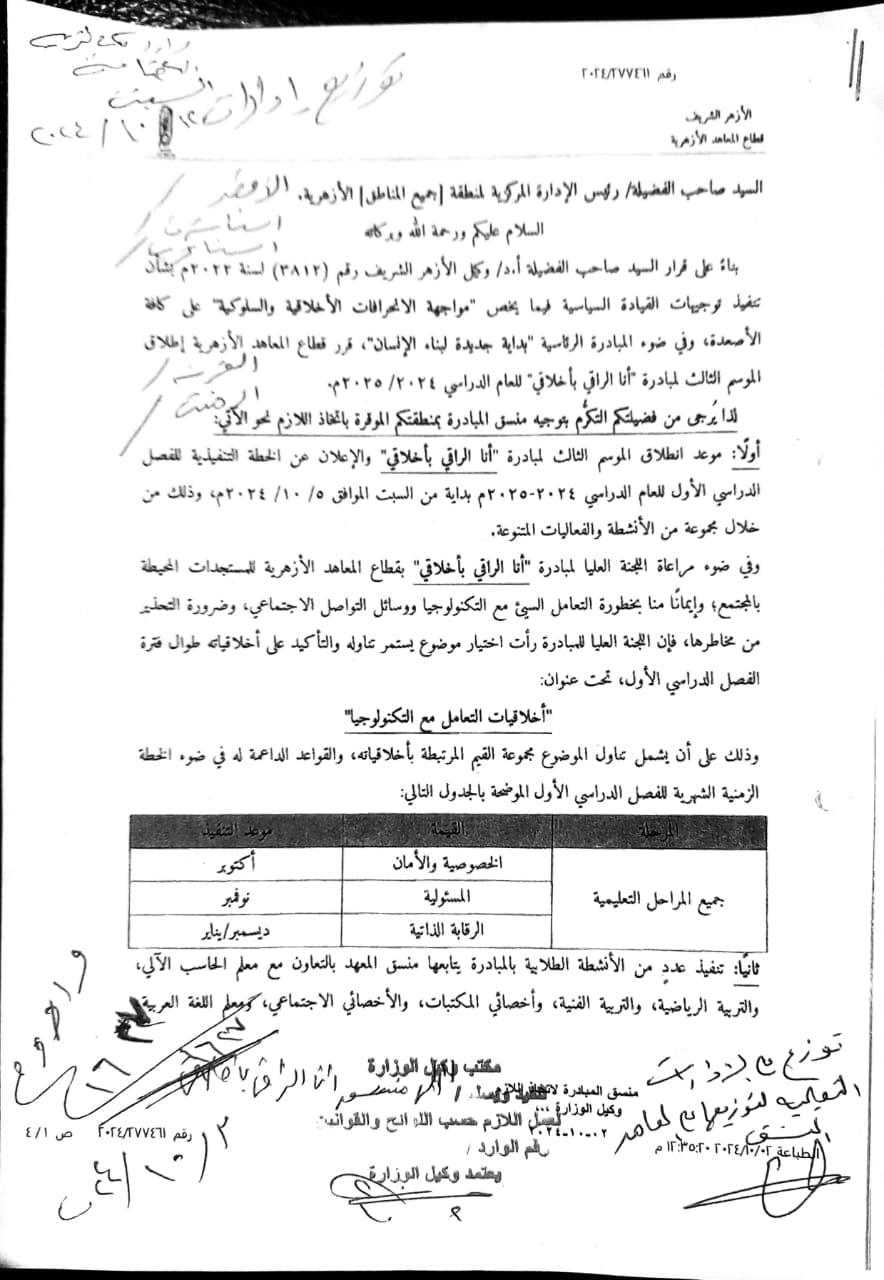 وارد
توزيع إدارات
السبت
١٢/١٠/٢٠٢٤
رقم ٢٠٢٤/٢٧٧٤٦١
الأزهر الشريف
قطاع المعاهد الأزهرية
السيد صاحب الفضيلة/ رئيس الإدارة المركزية لمنطقة [جميع المناطق] الأزهرية.
السلام عليكم ورحمة الله وبركاته
بناءً على قرار السيد صاحب الفضيلة أ.د/ وكيل الأزهر الشريف رقم (٣٨١٢) لسنة ٢٠٢٢م بشأن
تنفيذ توجيهات القيادة السياسية فيما يخص "مواجهة الانحرافات الأخلاقية والسلوكية" على كافة
الأصعدة، وفي ضوء المبادرة الرئاسية "بداية جديدة لبناء الإنسان"، قرر قطاع المعاهد الأزهرية إطلاق
الموسم الثالث لمبادرة "أنا الراقي بأخلاقي" للعام الدراسي ٢٠٢٤/ ٢٠٢٥م.
لذا يُرجى من فضيلتكم التكرُّم بتوجيه منسق المبادرة بمنطقتكم الموقرة باتخاذ اللازم نحو الآتي:
أولًا: موعد انطلاق الموسم الثالث لمبادرة "أنا الراقي بأخلاقي" والإعلان عن الخطة التنفيذية للفصل
الدراسي الأول للعام الدراسي ٢٠٢٤-٢٠٢٥م بداية من السبت الموافق ٥/ ١٠/ ٢٠٢٤م، وذلك من
خلال مجموعة من الأنشطة والفعاليات المتنوعة.
وفي ضوء مراعاة اللجنة العليا لمبادرة "أنا الراقي بأخلاقي" بقطاع المعاهد الأزهرية للمستجدات المحيطة
بالمجتمع؛ وإيمانًا منا بخطورة التعامل السيئ مع التكنولوجيا ووسائل التواصل الاجتماعي، وضرورة التحذير
من مخاطرها، فإن اللجنة العليا للمبادرة رأت اختيار موضوع يستمر تناوله والتأكيد على أخلاقياته طوال فترة
الفصل الدراسي الأول، تحت عنوان:
"أخلاقيات التعامل مع التكنولوجيا"
وذلك على أن يشمل تناول الموضوع مجموعة القيم المرتبطة بأخلاقياته، والقواعد الداعمة له في ضوء الخطة
الزمنية الشهرية للفصل الدراسي الأول الموضحة بالجدول التالي:
المرحلة القيمة موعد التنفيذ
جميع المراحل التعليمية
الخصوصية والأمان أكتوبر
المسئولية نوفمبر
الرقابة الذاتية ديسمبر/يناير
ثانيًا: تنفيذ عددٍ من الأنشطة الطلابية بالمبادرة يتابعها منسق المعهد بالتعاون مع معلم الحاسب الآلي،
والتربية الرياضية، والتربية الفنية، وأخصائي المكتبات، والأخصائي الاجتماعي، ومعلم اللغة العربية
مكتب وكيل الوزارة
منسق المبادرة لاتخاذ اللازم
وكيل الوزارة ...
٢٠٢٤-١٠-٠٢
لعمل اللازم حسب اللوائح والقوانين
رقم الوارد /
يعتمد وكيل الوزارة
الطباعة ٢٠٢٤/١٠/٠٢ ١٢:٣٥:٢٠ م
رقم ٢٠٢٤/٢٧٧٤٦١ ص ٤/١